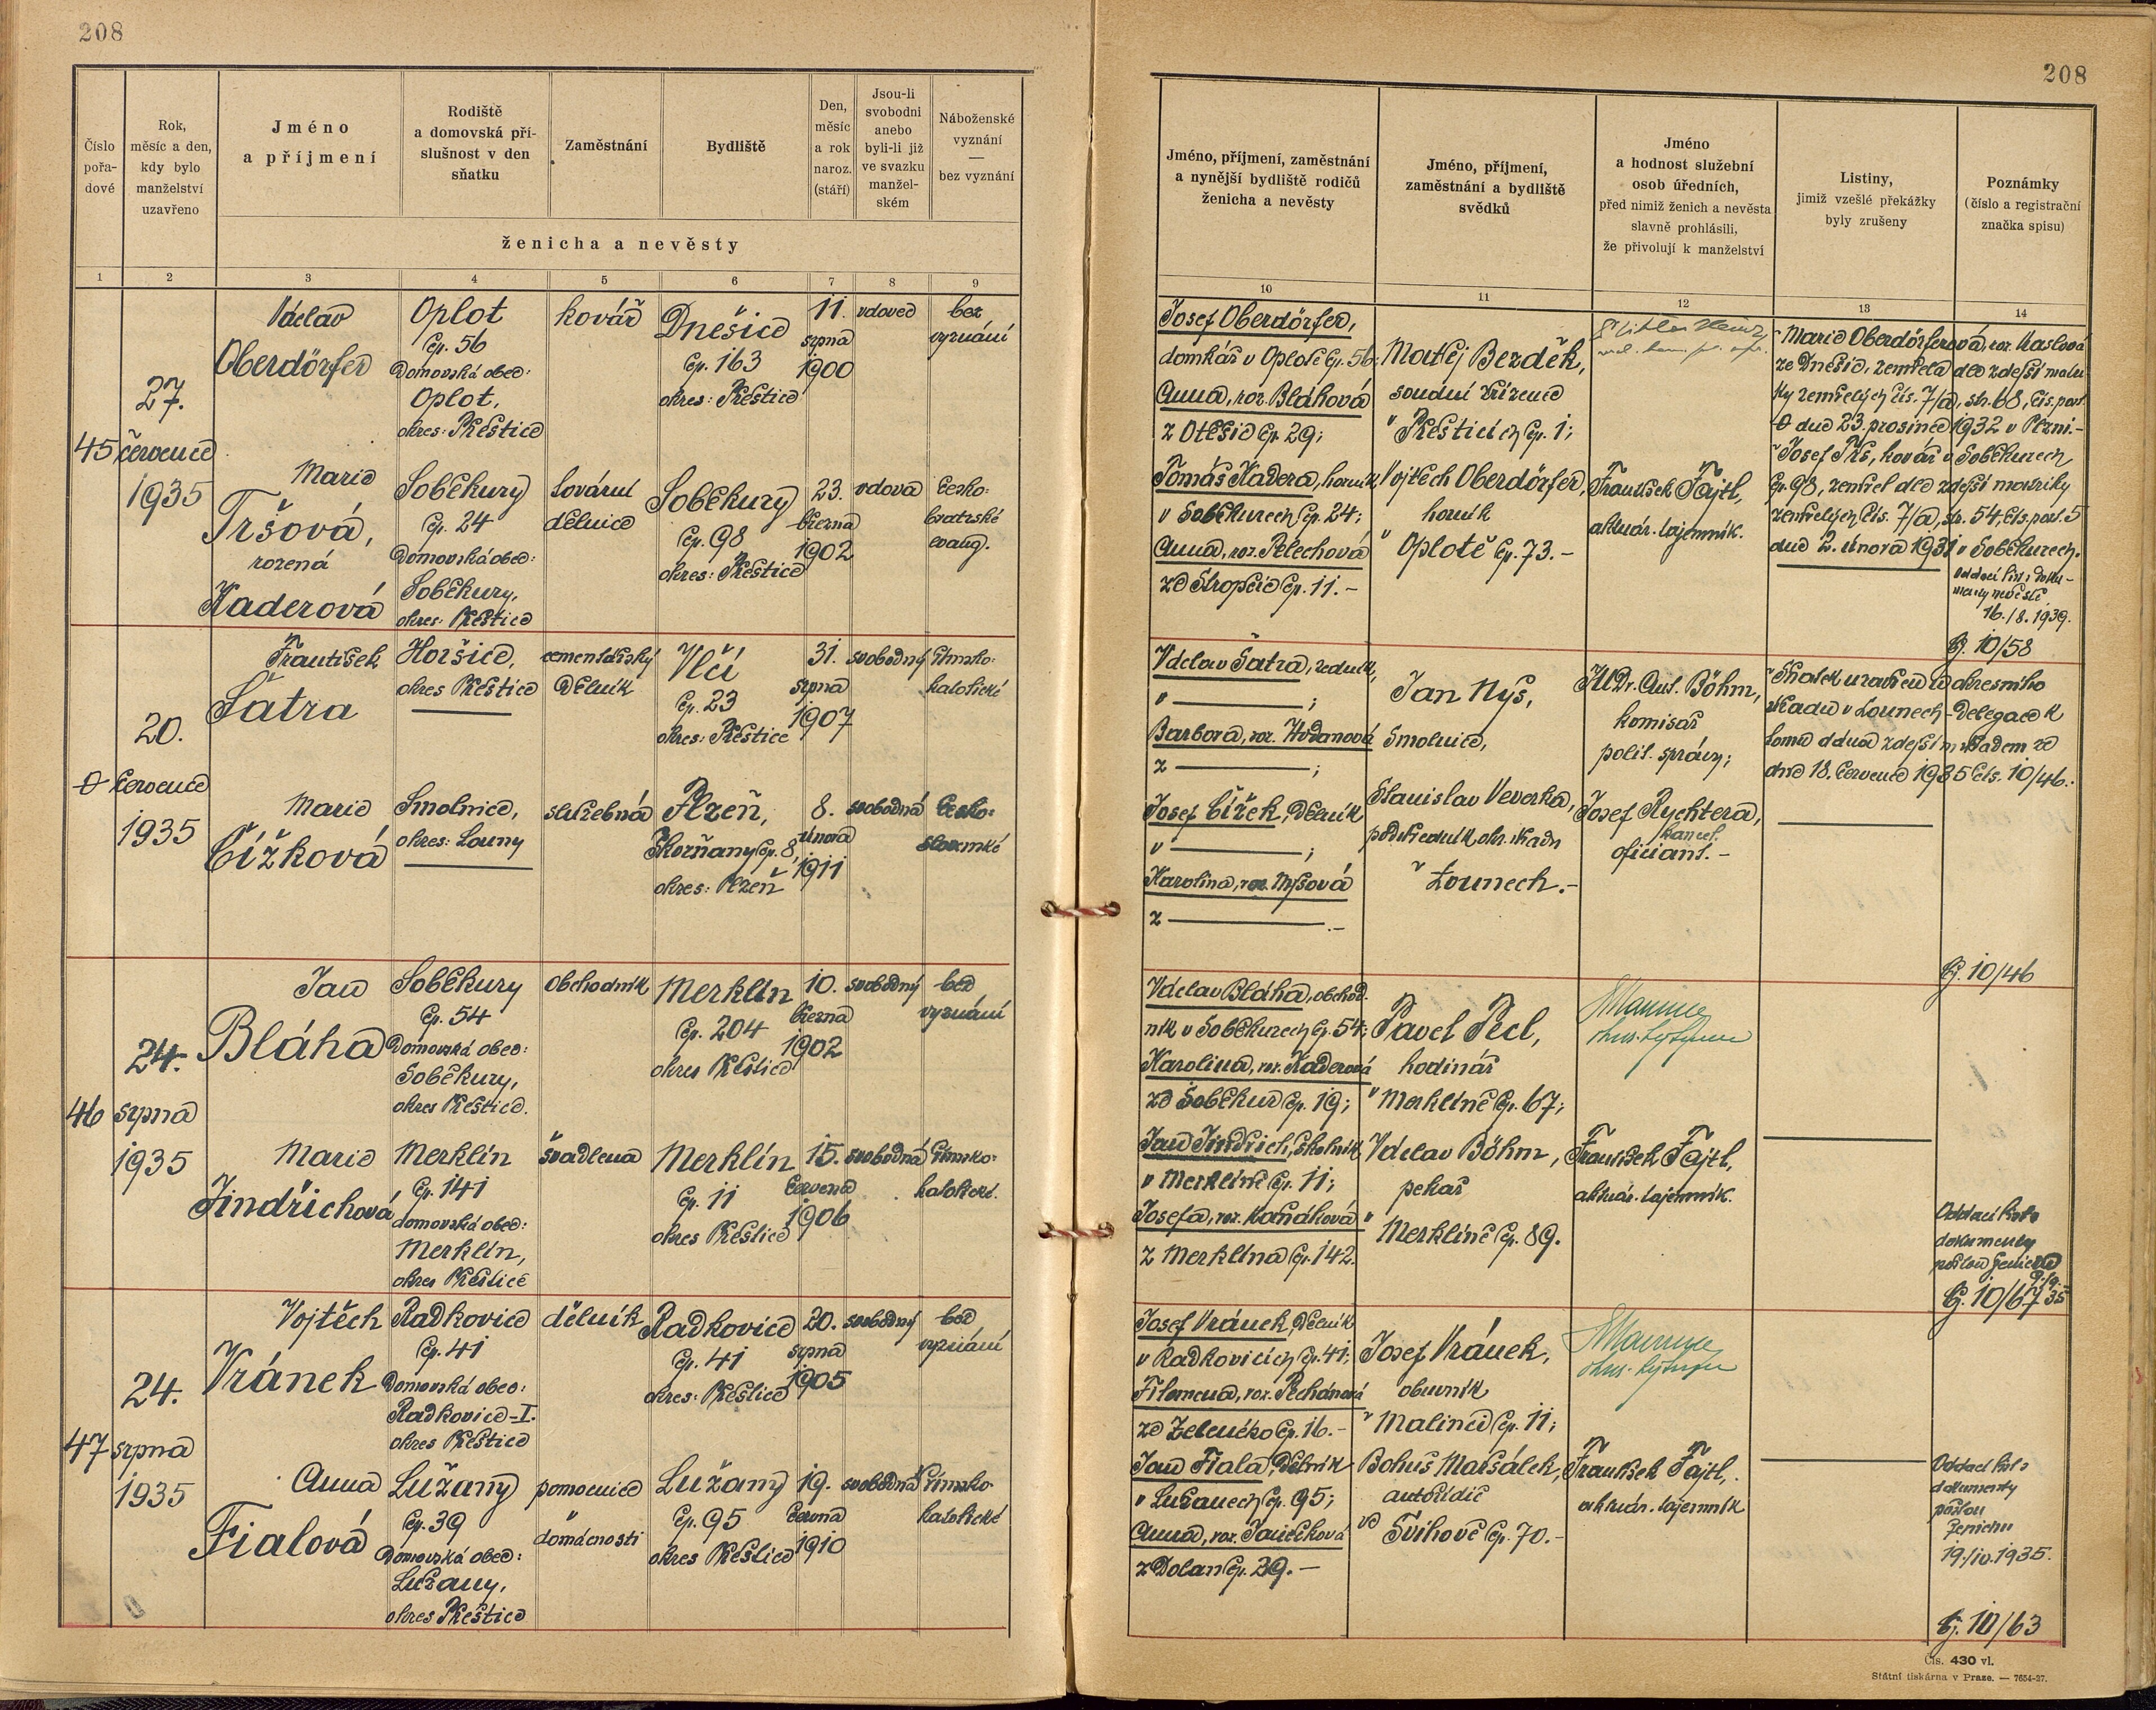 208
Číslo
pořa-
dové
Rok,
měsíc a den,
kdy bylo
manželství
uzavřeno
Jméno
a příjmení
Rodiště
a domovská pří-
slušnost v den
sňatku
Zaměstnání
Bydliště
Den,
měsíc
a rok
naroz.
(stáří)
Jsou-li
svobodni
anebo
byli-li již
ve svazku
manžel-
ském
Náboženské
vyznání
—
bez vyznání
ženicha a nevěsty
1 2 3 4 5 6 7 8 9
45
27.
července
1935
Václav
Oberdörfer
Oplot
čp. 56
Domovská obec:
Oplot,
okres: Přeštice
kovář
Dnešice
čp. 163
okres: Přeštice
11.
srpna
1900
vdovec
bez
vyznání
Marie
Tršová,
rozená
Kaderová
Soběkury
čp. 24
Domovská obec:
Soběkury,
okres: Přeštice
tovární
dělnice
Soběkury
čp. 98
okres: Přeštice
23.
března
1902
vdova
česko-
bratrské
evang.
0
20.
července
1935
František
Šatra
Horšice,
okres Přeštice
cementářský
dělník
Vlčí
čp. 23
okres: Přeštice
31.
srpna
1907
svobodný
římsko-
katolické
Marie
Čížková
Smolnice,
okres: Louny
služebná
Plzeň,
Skvrňany čp. 8,
okres: Plzeň
8.
února
1911
svobodná
česko-
slovenské
46
24.
srpna
1935
Jan
Bláha
Soběkury
čp. 54
Domovská obec:
Soběkury,
okres Přeštice.
obchodník
Merklín
čp. 204
okres Přeštice
10.
března
1902
svobodný
bez
vyznání
Marie
Jindřichová
Merklín
čp. 141
domovská obec:
Merklín,
okres Přeštice
švadlena
Merklín
čp. 11
okres Přeštice
15.
června
1906
svobodná
římsko-
katolické.
47
24.
srpna
1935
Vojtěch
Vránek
Radkovice
čp. 41
Domovská obec:
Radkovice-I.
okres Přeštice
dělník
Radkovice
čp. 41
okres: Přeštice
20.
srpna
1905
svobodný
bez
vyznání
Anna
Fialová
Lužany
čp. 39
Domovská obec:
Lužany,
okres Přeštice
pomocnice
v
domácnosti
Lužany
čp. 95
okres Přeštice
19.
června
1910
svobodná
římsko-
katolické
208
Jméno, příjmení, zaměstnání
a nynější bydliště rodičů
ženicha a nevěsty
Jméno, příjmení,
zaměstnání a bydliště
svědků
Jméno
a hodnost služební
osob úředních,
před nimiž ženich a nevěsta
slavně prohlásili,
že přivolují k manželství
Listiny,
jimiž vzešlé překážky
byly zrušeny
Poznámky
(číslo a registrační
značka spisu)
10 11 12 13 14
Josef Oberdörfer,
domkář v Oplotě čp. 56;
Anna, roz. Bláhová
z Otěšic čp. 29;
Tomáš Kadera, horník
v Soběkurech čp. 24;
Anna, roz. Pelechová
ze Stropčic čp. 11.-
Matěj Bezděk,
soudní zřízenec
v Přešticích čp. 1;
Vojtěch Oberdörfer,
horník
v Oplotě čp. 73.-
František Fajtl,
aktuár. tajemník.
Marie Oberdörferová, roz. Maslová
ze Dnešic, zemřela dle zdejší matri-
ky zemřelých čís. 7/a, str. 68, čís. poř.
0 dne 23. prosince 1932 v Plzni.-
Josef Trš, kovář v Soběkurech
čp. 98, zemřel dle zdejší matriky
zemřelých čís. 7/a, str. 54, čís. poř. 5
dne 2. února 1931 v Soběkurech.
Oddací list, doku-
menty nevěstě
16./8. 1939.
Čj. 10/58
Václav Šatra, rolník,
v ;
Barbora, roz. Hodanová
z ;
Josef Čížek, dělník
v ;
Karolina, roz. Nyšová
z .-
Jan Nyš,
Smolnice,
Stanislav Veverka,
podúředník okr. úřadu
v Lounech.-
JUDr. Ant. Böhm,
komisař
polit. správy;
Josef Rychtera,
kancel.
oficiant.-
Sňatek uzavřen u okresního
úřadu v Lounech - Delegace k
tomu dána zdejším úřadem ze
dne 18. července 1935 čís. 10/46.-
Čj. 10/46
Václav Bláha, obchod-
ník v Soběkurech čp. 54;
Karolina, roz. Kaderová
ze Soběkur čp. 19;
Jan Jindřich, školník
v Merklíně čp. 11;
Josefa, roz. Kaňáková
z Merklína čp. 142.
Pavel Pecl,
hodinář
v Merklíně čp. 67;
Václav Böhm,
pekař
v Merklíně čp. 89.
František Fajtl,
aktuár. tajemník.
Oddací list a
dokumenty
poštou ženichu
Čj. 10/67
Josef Vránek, dělník
v Radkovicích čp. 41;
Filomena, roz. Pechánová
ze Zeleného čp. 16.-
Jan Fiala, dělník
v Lužanech čp. 95;
Anna, roz. Janečková
z Dolan čp. 39.-
Josef Vránek,
obuvník
v Malinci čp. 11;
Bohuš Maršálek,
autořidič
ve Švihově čp. 70.-
František Fajtl,
aktuár. tajemník
Oddací list a
dokumenty
poštou
ženichu
19./10. 1935.
Čj. 10/63
Čís. 430 vl.
Státní tiskárna v Praze. — 7654-27.